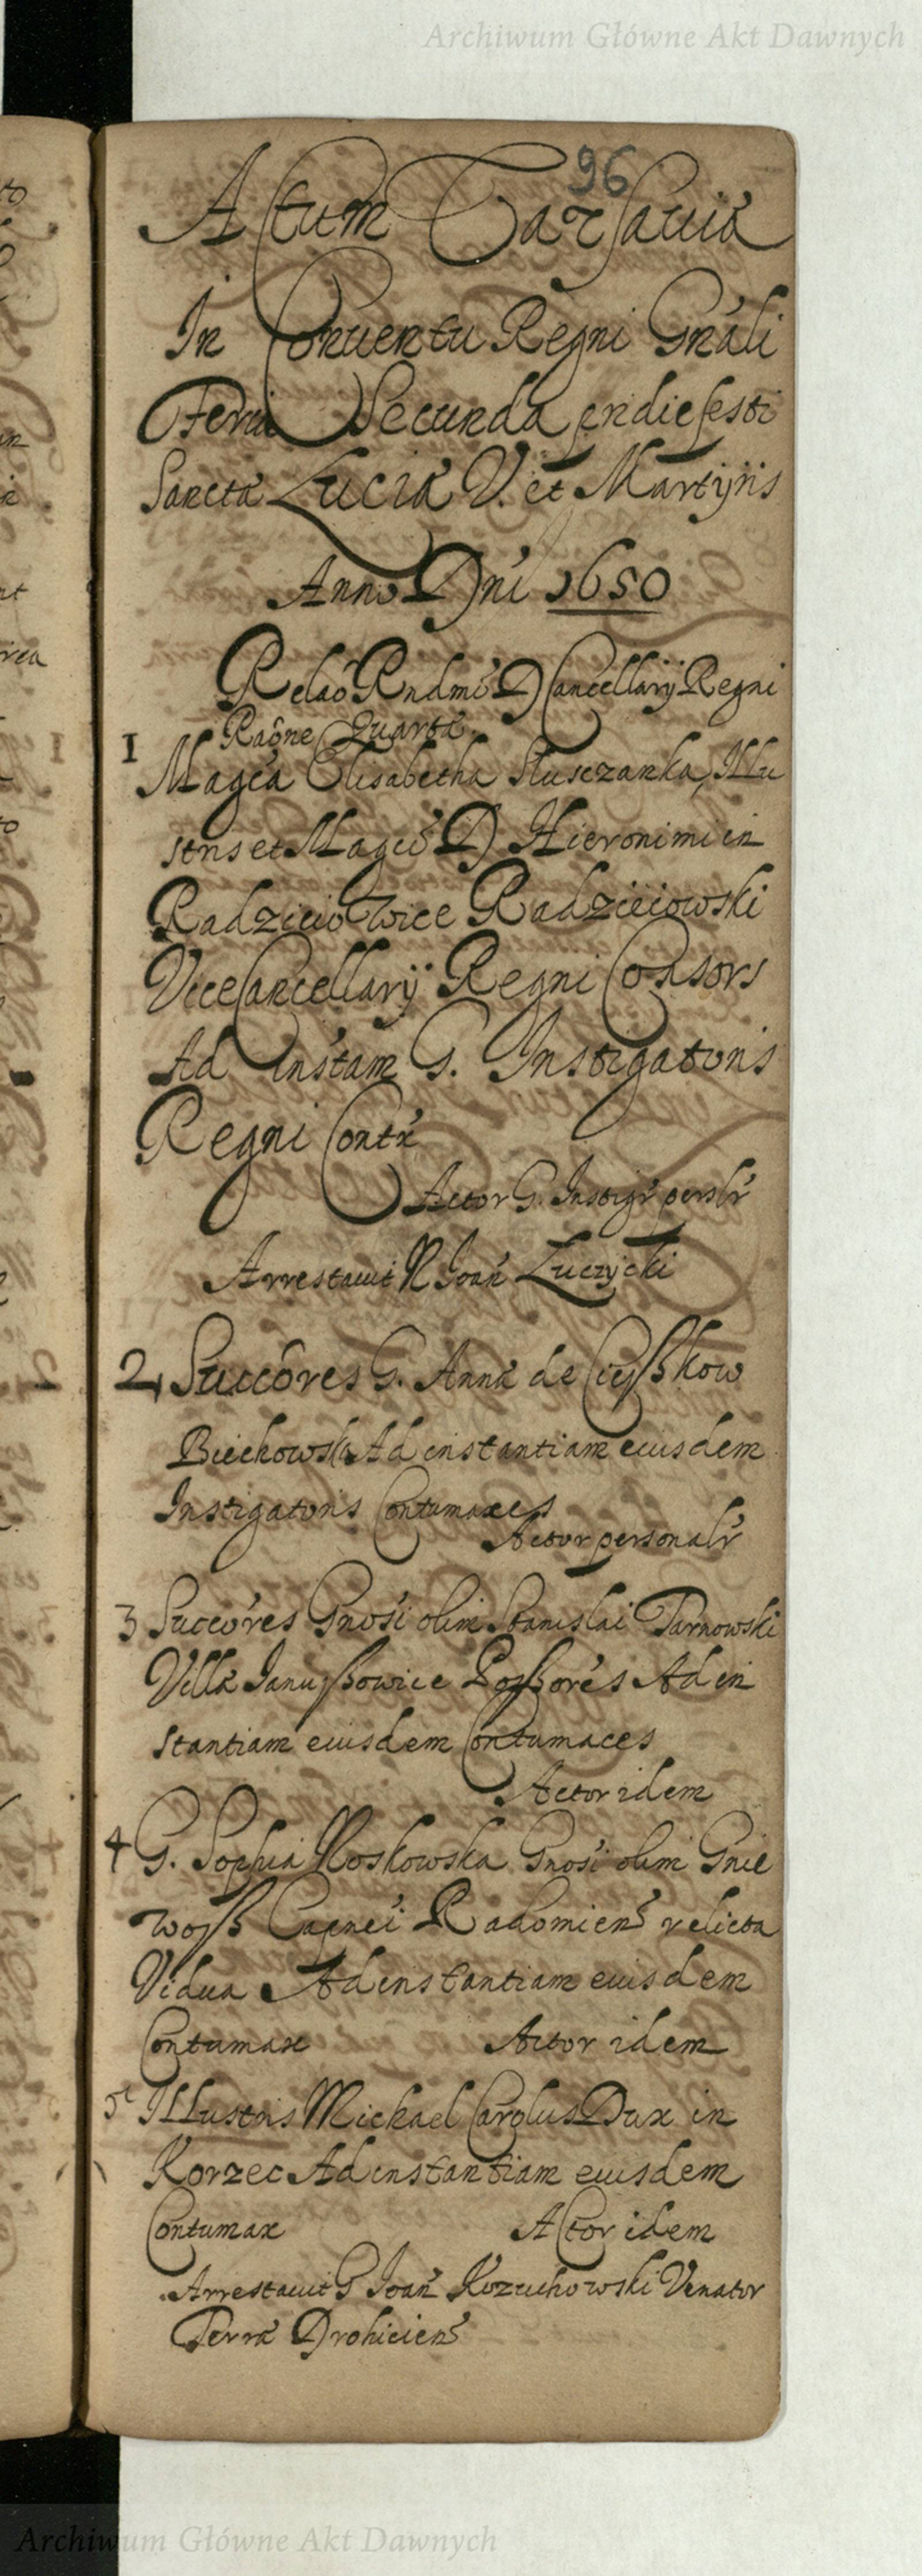 Archiwum Główne Akt Dawnych
96
Actum Varsauiæ
In Conuentu Regni Gnáli
Feria Secunda pridie festi
Sanctæ Luciæ V. et Martyris
Anno Dni 1650
Relaó Rndmi D Cancellarij Regni
Raône Quarta
1 Magca Elisabetha Slusczanka, Illu
stris et Magci D Hieronimi in
Radzieiowice Radzieiowski
ViceCancellarij Regni Consors
Ad Instam G. Instigatoris
Regni Contx
Actor G. Instigr perslr
Arrestauit N Joan Luczycki
2 Succôres G. Annæ de Cieszkow
Biechowska Ad instantiam eiusdem
Instigatoris Contumaces
Actor personalr
3 Succôres Gnosi olim Stanislai Tarnowski
Villæ Januszowice Possorés Ad in
stantiam eiusdem Contumaces
Actor idem
4 G. Sophia Noskowska Gnosi olim Gnie
wosz Capnei Radomien relicta
Vidua Ad instantiam eiusdem
Contumax Actor idem
5 Illustris Michael Carolus Dux in
Korzec Ad instantiam eiusdem
Contumax Actor idem
Arrestauit G Joan Kozuchowski Venator
Terræ Drohicien
Archiwum Główne Akt Dawnych